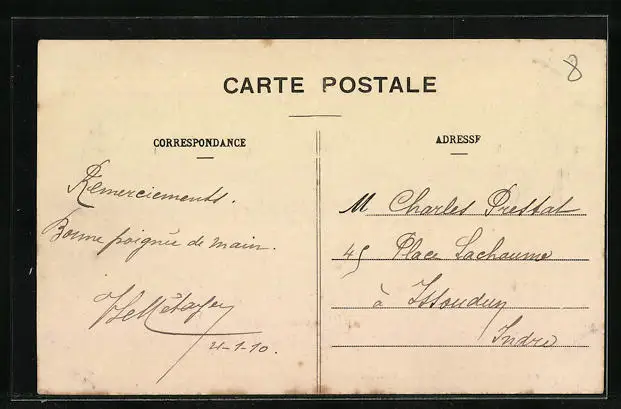 8
CARTE POSTALE
CORRESPONDANCE
ADRESSE
Remerciements.
Bonne poignée de main.
4-1-10.
M Charles Prestat
45 Place Lachaume
à Issoudun
Indre